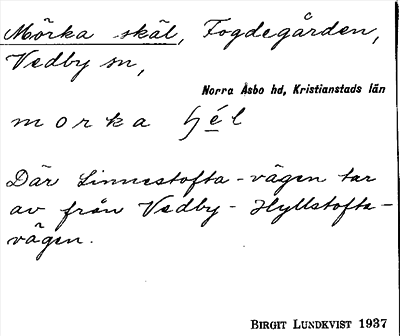 Mörka skäl, Fogdegården,
Vedby sn,
Norra Åsbo hd, Kristianstads län
morka ʃjél
Där Linnestofta-vägen tar
av från Vedby - Hyllstofta-
vägen.
BIRGIT LUNDKVIST 1937